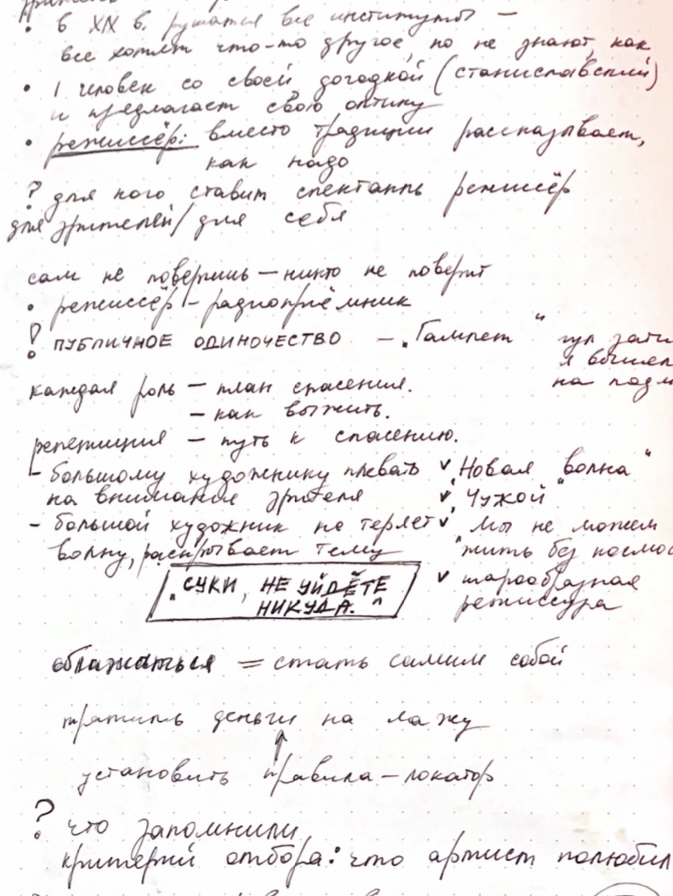 • в XIX в. рушатся все институты —
все хотят что-то другое, но не знают, как
• 1 человек со своей догадкой (Станиславский)
и предлагает свою оптику
• режиссёр: вместо традиции рассказывает,
как надо
? для кого ставит спектакль режиссёр
для зрителей/для себя
сам не поверишь — никто не поверит
• режиссёр — радиоприёмник
! ПУБЛИЧНОЕ ОДИНОЧЕСТВО — „Гамлет“ гул
я
на
каждая роль — план спасения.
— как выжить.
репетиция — путь к спасению.
– большому художнику плевать
на внимания зрителя
– большой художник не теряет
волну, раскрывает тему
v „Новая волна“
v „Чужой“
v „Мы не можем
жить без
v шарообразная
режиссура
„СУКИ, НЕ УЙДЁТЕ
НИКУДА.“
= стать самим собой
тратить деньги на лажу
↑
установить правила — локатор
? что запомнили,
критерий отбора: что артист полюбил